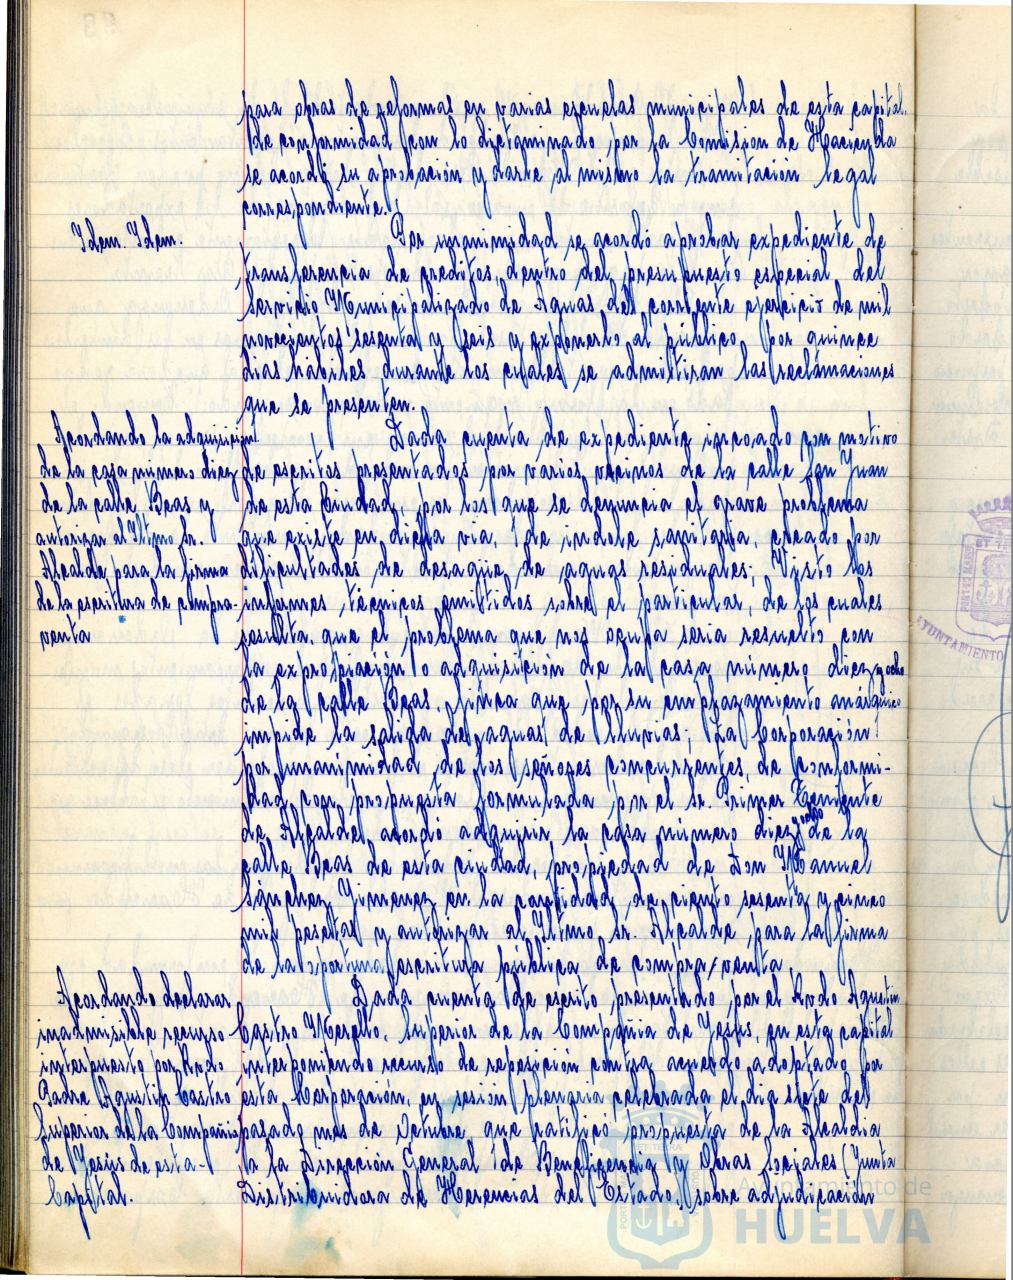 para obras de reformas en varias escuelas municipales de esta capital.
De conformidad con lo dictaminado por la Comision de Hacienda
se acordó su aprobación y darle al mismo la tramitación legal
correspondiente.
Idem. Idem.
Por unanimidad se acordó aprobar expediente de
transferencia de creditos dentro del presupuesto especial del
Servicio Municipalizado de Aguas del corriente ejercicio de mil
novecientos sesenta y seis y exponerlo al público por quince
dias habiles, durante los cuales se admitiran las reclamaciones
que se presenten.
Acordando la adquisición
de la casa numero diez
de la calle Beas y
autorizar al Iltmo Sr.
Alcalde para la firma
de la escritura de compra-
venta
Dada cuenta de expediente incoado con motivo
de escritos presentados por varios vecinos de la calle San Juan
de esta Ciudad, por los que se denuncia el grave problema
que existe en dicha via, de indole sanitaria, creado por
dificultades de desagüe de aguas residuales; Visto los
informes técnicos emitidos sobre el particular, de los cuales
resulta que el problema que nos ocupa seria resuelto con
la expropiación o adquisición de la casa número diez y ocho
de la calle Beas, finca que, por su emplazamiento
impide la salida de aguas de lluvias; La Corporación
por unanimidad de los señores concurrentes, de conformi-
dad con propuesta formulada por el Sr. Primer Teniente
de Alcalde, acordó adquirir la casa número diez y ocho de la
calle Beas de esta ciudad, propiedad de Don Manuel
Sánchez Yimenez en la cantidad de ciento sesenta y cinco
mil pesetas y autorizar al Iltmo. Sr. Alcalde, para la firma
de la oportuna escritura pública de compra/venta.
Acordando declarar
inadmisible recurso
interpuesto por Rvdo
Padre Agustin Castro
Superior de la Compañia
de Yesús de esta-
Capital.
Dada cuenta de escrito presentado por el Rvdo Agustin
Castro Merello, Superior de la Compañia de Yesús en esta capital
interponiendo recurso de reposición contra acuerdo adoptado por
esta Corporación, en sesión plenaria celebrada el dia siete del
pasado mes de Octubre, que ratificó propuesta de la Alcaldia
a la Dirección General de Beneficencia y Obras Sociales (Junta
Distribuidora de Herencias del Estado) sobre adjudicación
AYUNTAMIENTO
Ayuntamiento de
HUELVA